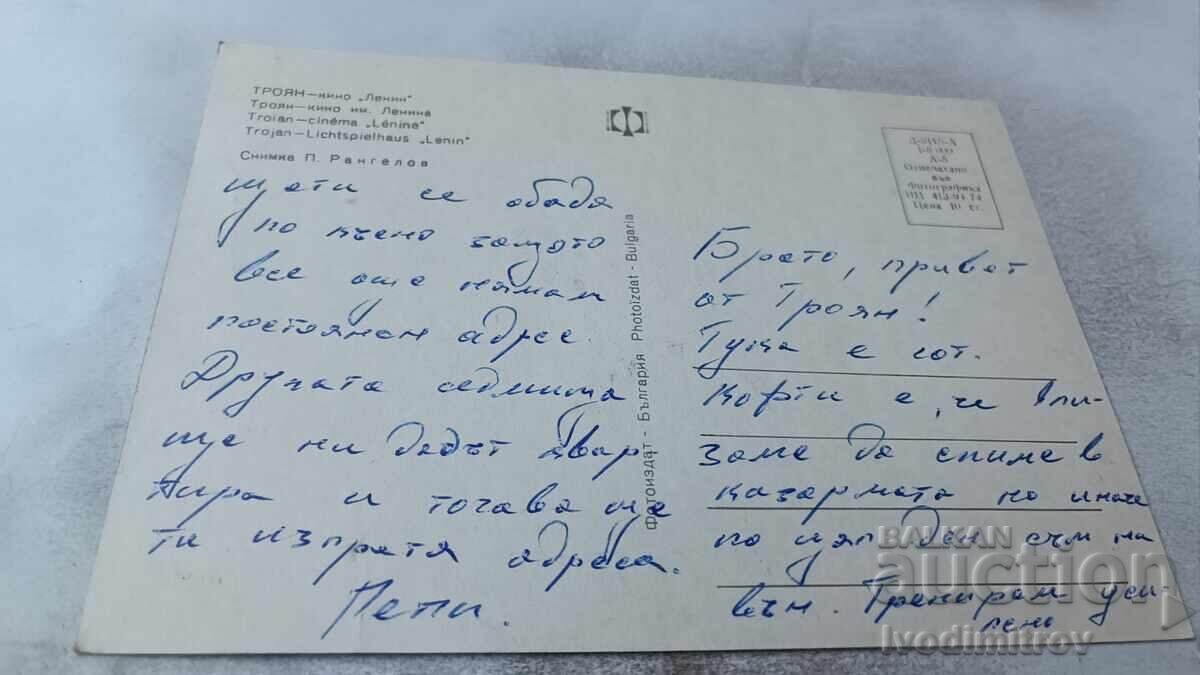 ТРОЯН—кино „Ленин"
Троян—кино им. Ленина
Troian—cinéma „Lénine"
Trojan—Lichtspielhaus „Lenin"
Снимка П. Рангелов
Отпечатано
във
Фотографика
Цена 10 ст.
Фотоиздат - България Photoizdat - Bulgaria
Брато, привет
от Троян!
Тука е гот.
Кофти е, че вли-
заме да спиме в
казармата но иначе
по цял ден съм на
вън. Тренирам уси-
лено
щети се обадя
по късно защото
все още нямам
постоянен адрес.
Другата седмица
ще ни дадът квар
тира и тогава ще
ти изпратя адреса.
Пепи.
BALKAN
auction
Ivodimitrov